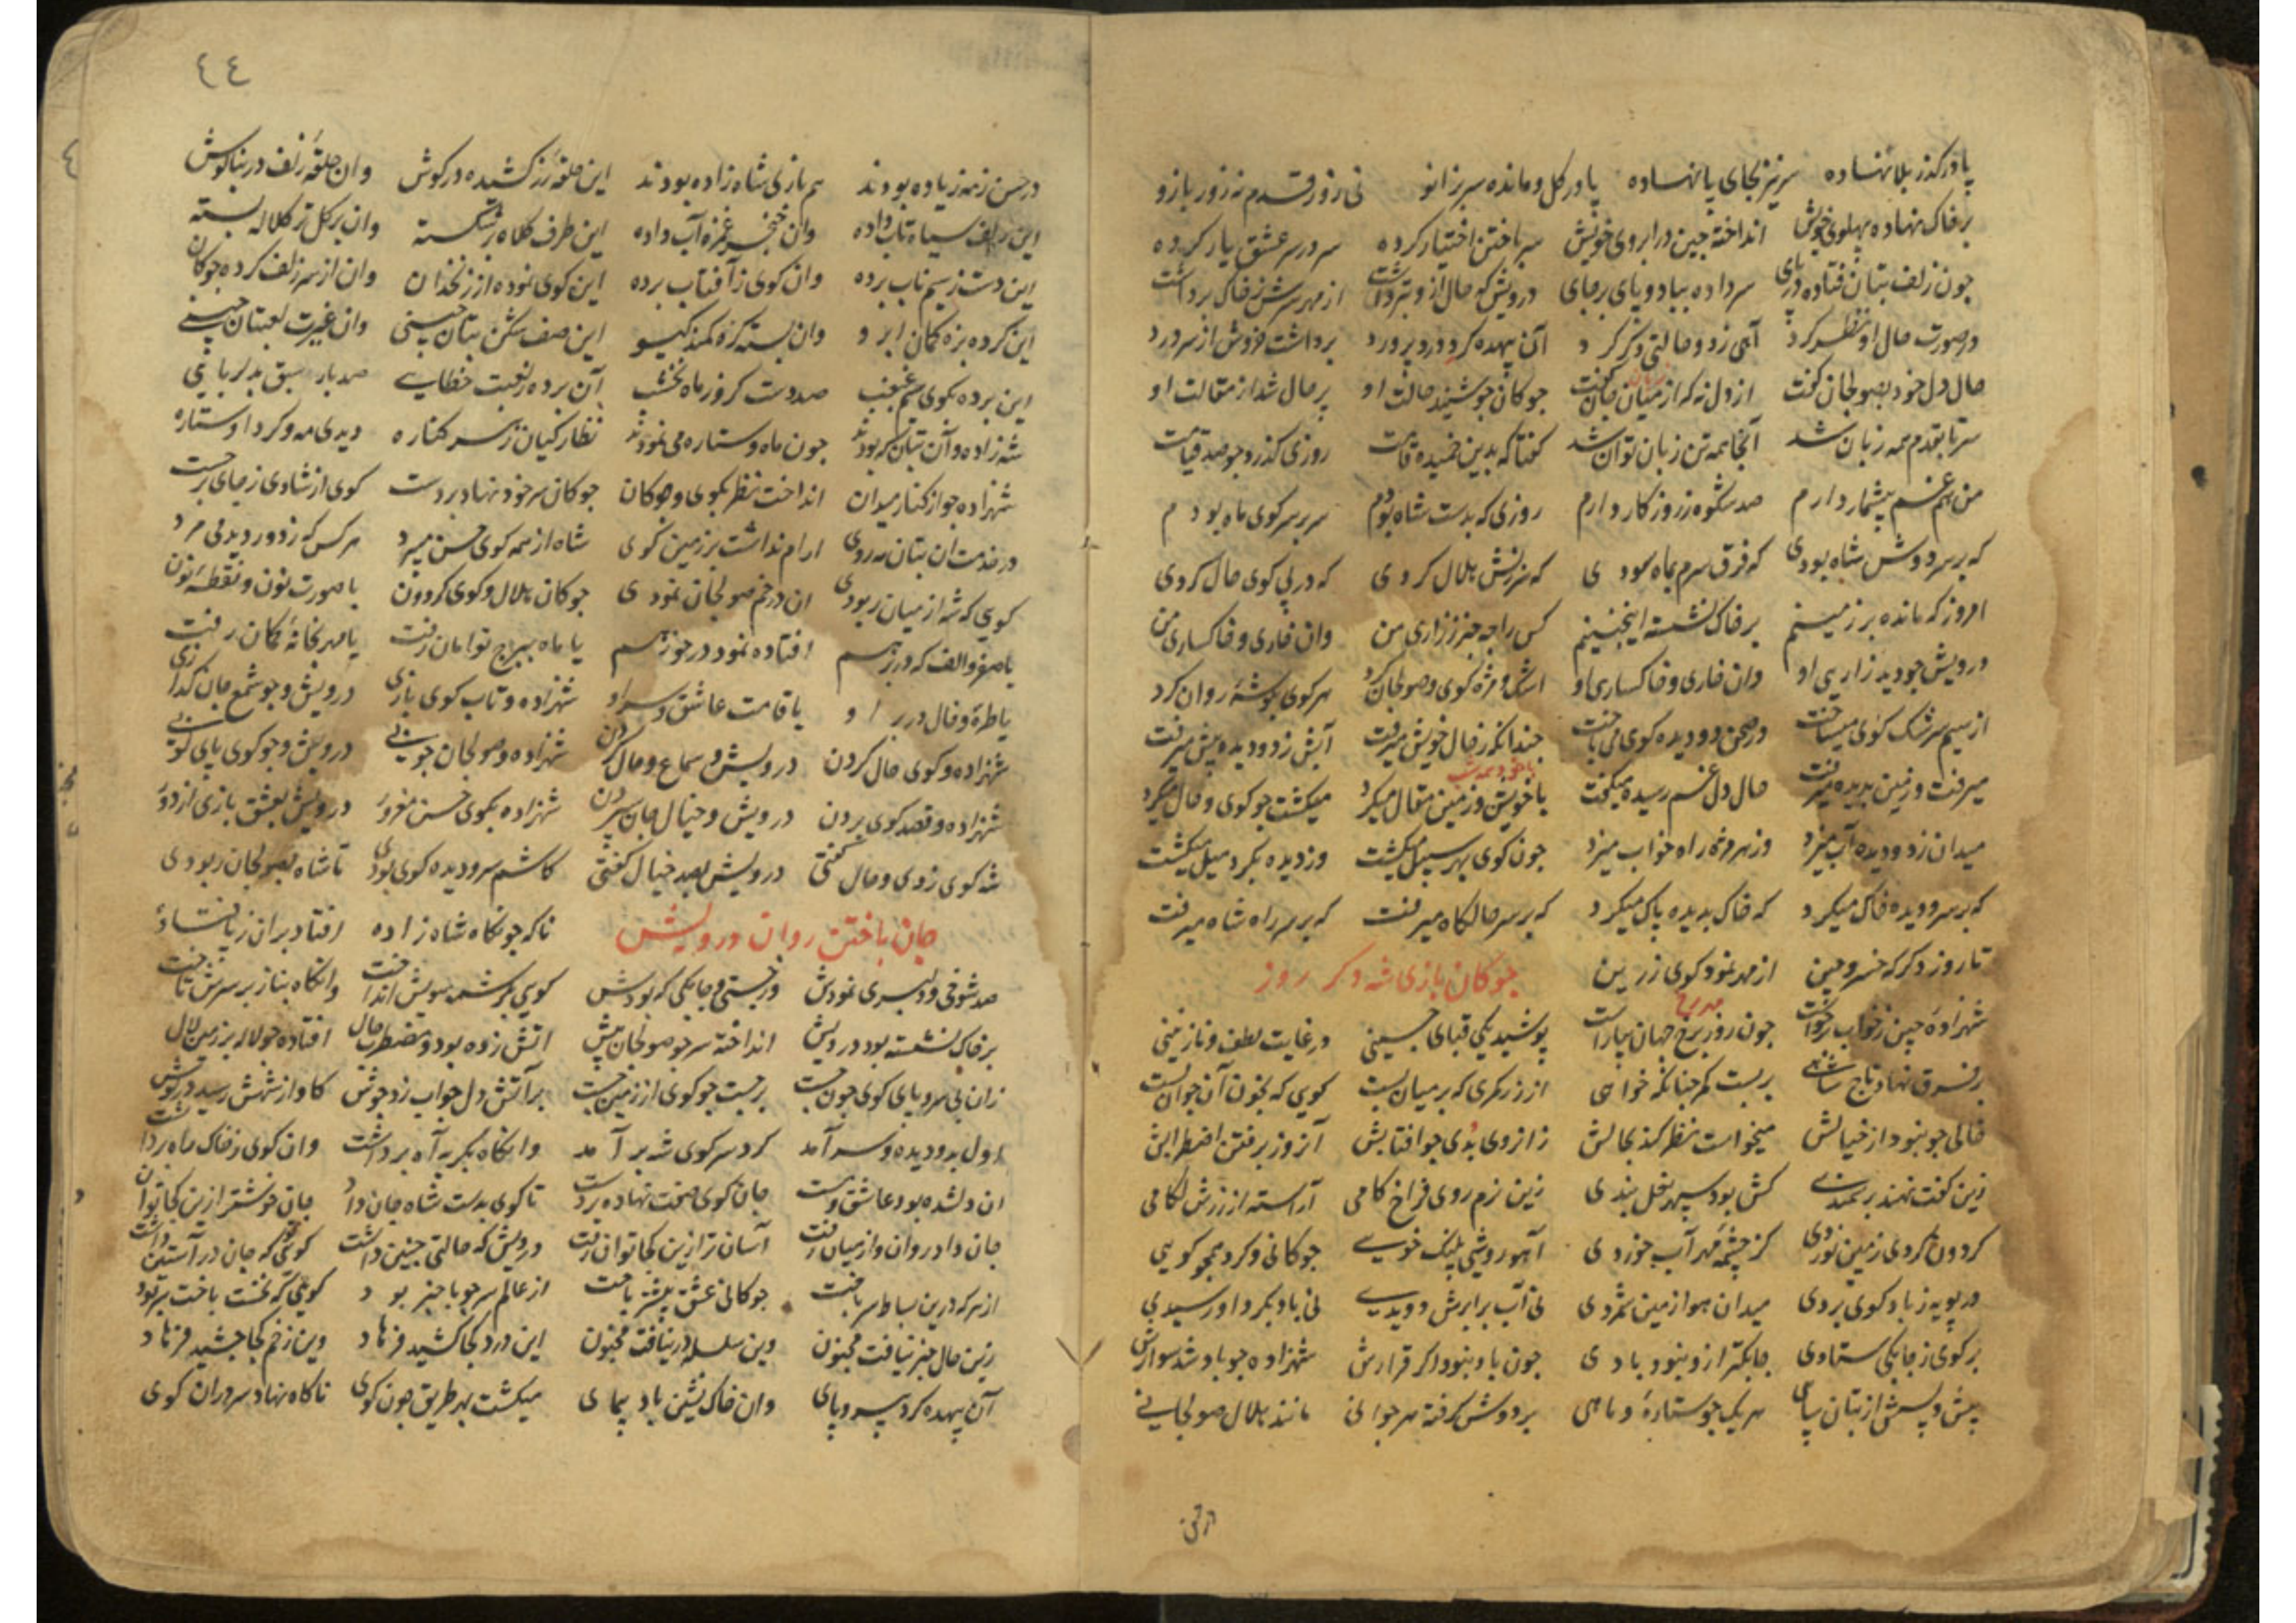 پا در کذر بلا نهاده سر نیز بجای پا نهاده پا در کل و مانده سر بزانو نی زور قدم نه زور بازو
بر خاک نهاده پهلوی خویش انداخته چین در ابروی خویش سر باختن اختیار کرده سر در سر عشق یار کرده
چون زلف بتان فتاده در پای سر داده بباد و پای بر جای درویش که حال از و بتر داشت از مهر سرش ز خاک برداشت
در صورت حال او نظر کرد آهی زد و حالتی دکر کرد آن بیهده کرد درد پرورد برداشت خروش از سر درد
حال دل خود بصولجان کفت از دل نه که از میان جان کفت جوکان جو شنید حالت او پر حال شد از مقالت او
سر تا بقدم همه زبان شد آنجا همه تن زبان توان شد کفتا که بدین خمیده قامت روزی کذرد جو صد قیامت
من هم غم بیشمار دارم صد شکوه ز روزکار دارم روزی که بدست شاه بودم سر بر سر کوی ماه بودم
که بر سر دوش شاه بودی که فرق سرم بماه سودی که سرزنش هلال کردی که در پی کوی حال کردی
امروز که مانده بر زمینم بر خاک نشسته اینچنینم کس را چه خبر ز زاری من وان خاری و خاکساری من
درویش جو دید زاری او وان خاری و خاکساری او اشک و مژه کوی و صولجان کرد هر کوی بکوشه روان کرد
از سیم سرشک کوی میساخت در صحن دو دیده کوی می باخت چندانکه ز حال خویش میرفت آبش ز دو دیده پیش میرفت
میرفت و زمین بدیده میرفت حال دل غم رسیده میکفت با خویشتن و زمین مقال میکرد میکشت جو کوی و حال میکرد
میدان ز دو دیده آب میزد وز هر مژه راه خواب میزد چون کوی بهر سبیل میکشت وز دیده بکرد میل میکشت
که بر سر و دیده خاک میکرد که خاک بدیده پاک میکرد که بر سر حالکاه میرفت که بر سر راه شاه میرفت
تا روز دکر که خسرو چین از مهد نمود کوی زرین جوکان بازی شه دکر روز
شهزاده چین ز خواب برخاست چون روز برخ جهان بیاراست پوشید یکی قبای چینی در غایت لطف و نازنینی
بر فرق نهاد تاج شاهی بربست کمر چنانکه خواهی از زر کمری که بر میان بست کویی که بخون آن جوان بست
خالی جو نبود از خیالش میخواست نظر کند بحالش زان روی بدی جو آفتابش آن روز برفتن اضطرابش
زین کفت نهند بر سمندی کش بود سپهر نعل بندی زین نرم روی فراخ کامی آراسته از زرش لکامی
کردون کردی زمین نوردی کز چشمه مهر آب خوردی آهو روشی پلنک خویی جوکانی و کرد همجو کویی
در پویه ز باد کوی بردی میدان هوا زمین شمردی نی آب برابرش دویدی نی باد بکرد او رسیدی
بر کوی ز جابکی ستادی جابکتر ازو نبود بادی چون باد نبود اکر قرارش شهزاده جو باد شد سوارش
پیش و پسش از بتان سپاهی هر یک جو ستاره و ماهی بر دوش کرفته هر جوانی مانند هلال صولجانی
٤٤
در حسن ز مه زیاده بودند هم بازی شاه زاده بودند این حلقه زر کشیده در کوش وان حلقه زلف در بناکوش
این زلف سیاه تاب داده وان خنجر غمزه آب داده این طرف کلاه بر شکسته وان بر کل تر کلاله بسته
این دست ز سیم ناب برده وان کوی ز آفتاب برده این کوی نموده از زنخدان وان از سر زلف کرده جوکان
این کرده بزه کمان ابرو وان بسته کره کمند کیسو این صف شکن بتان چینی وان غیرت لعبتان چینی
این برده بکوی سیم غبغب صد دست کرو ز ماه نخشب آن برده ز لعبت خطایی صد بار سبق بدلربایی
شه زاده و آن بتان که بودند چون ماه و ستاره می نمودند نظارکیان ز هر کناره دیدی مه و کرد او ستاره
شهزاده جو از کنار میدان انداخت نظر بکوی و جوکان جوکان سر خود نهاد بر دست کوی از شادی ز جای برجست
در خدمت ان بتان مه روی ارام نداشت بر زمین کوی شاه از همه کوی حسن میبرد هر کس که ز دور دید می مرد
کویی که شه از میان ربودی ان در خم صولجان نمودی جوکان هلال و کوی کردون یا صورت نون و نقطه نون
یا صفر و الف که در رسم افتاده نمود در حوزهم یا ماه ببرج توامان رفت یا مهر بخانه کمان رفت
یا طره و خال در بر او یا قامت عاشق و سر او شهزاده و تاب کوی بازی درویش و جو شمع جان کدازی
شهزاده و کوی حال کردن درویش و سماع و حال کردن شهزاده و صولجان جویی درویش و جو کوی پای کوبی
شهزاده و قصد کوی بردن درویش و خیال جان سپردن شهزاده بکوی حسن مغرور درویش بعشق بازی از دور
شه کوی زدی و حال کفتی درویش بصد خیال کفتی کاشم سر و دیده کوی بودی تا شاه بصولجان ربودی
جان باختن روان درویش ناکه جو نکاه شاه زاده افتاد بران ز پا فتاده
صد شوخی و دلبری نمودش در چستی و جابکی که بودش کویی بکرشمه سویش انداخت وانکاه بناز بر سرش تاخت
بر خاک نشسته بود درویش انداخته سر جو صولجان پیش آتش زده بود و مضطرب حال افتاده جو لاله بر زمین لال
زان بی سر و پای کوی چون جست برجست جو کوی از زمین جست بر آتش دل جو آب زد جوش کاواز شهش رسید در کوش
اول بدو دیده و سر آمد کرد سر کوی شه برآمد وانکاه بکریه آه برداشت وان کوی ز خاک راه برداشت
ان دلشده بود عاشق و مست جان کوی صفت نهاده بر دست تا کوی بدست شاه جان داد جان خوشتر ازین کجا توان داد
جان داد روان و از میان رفت آسان تر ازین کجا توان رفت درویش که حالتی چنین داشت کویی که جان در آستین داشت
از هر که درین بساط سر باخت جوکانی عشق پیشتر باخت از عالم سر جو با خبر بود کویی که نخست باخت سر بود
زین حال خبر نیافت مجنون وین سلسله در نیافت مجنون این درد کجا کشید فرهاد وین زخم کجا چشید فرهاد
آن بیهده کرد بی سر و پای وان خاک نشین باد پیمای میکشت بهر طریق چون کوی ناکاه نهاد سر وران کوی